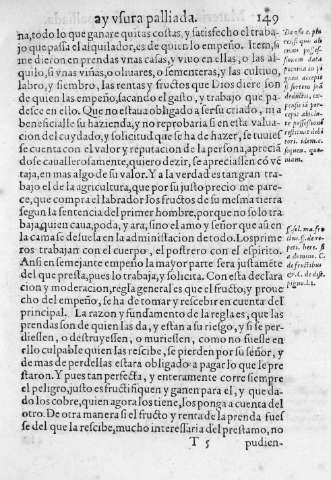 ay vsura palliada. 149
na, todo lo que ganare quitas costas, y satisfecho el traba-
jo que passa el alquilador, es de quien lo empeño. Item, si
me dieron en prendas vnas casas, y viuo en ellas, o las al-
quilo, si vnas viñas, o oliuares, o sementeras, y las cultiuo,
labro, y siembro, las rentas y fructos que Dios diere son
de quien las empeño, sacando el gasto, y trabajo que pa-
desce en ello. Que no estaua obligado a ser su criado, ni a
beneficialle su hazienda, y no reprobaria si en esta valua-
cion del cuydado, y solicitud que se ha de hazer, se tuuies
se cuenta con el valor y reputacion de la persona, aprecia
dose cauallerosamente, quiero dezir, se apreciassen có vé
taja, en mas algo de su valor. Y a la verdad es tan gran tra-
bajo el de la agricultura, que por su justo precio me pare-
ce, que compra el labrador los fructos de su mesma tierra
segun la sentencia del primer hombre, porque no solo tra
baja, quien caua, poda, y ara, sino el amo y señor que aũ en
la cama se desuela en la administracion de todo. Los prime
ros trabajan con el cuerpo, el postrero con el espirito.
Ansi en semejante empeño la mayor parte sera justaméte
del que presta, pues lo trabaja, y solicita. Con esta declara
cion y moderacion, regla general es que el fructo, y proue
cho del empeño, se ha de tomar y rescebir en cuenta del
principal. La razon y fundamento de la regla es, que las
prendas son de quien las da, y estan a su riesgo, y si se per-
diessen, o destruyessen, o muriessen, como no fuesse en
ello culpable quien las rescibe, se pierden por su señor, y
de mas de perdellas estara obligado a pagar lo que le pre
staron. Y pues tan perfecta, y enteramente corre siempre
el peligro, justo es fructifiquen y ganen para el, y que da-
dos los cobre, quien agora los tiene, los ponga a cuenta del
otro. De otra manera si el fructo y renta de la prenda fues
se del que la rescibe, mucho interessaria del prestamo, no
T 5 pudien-